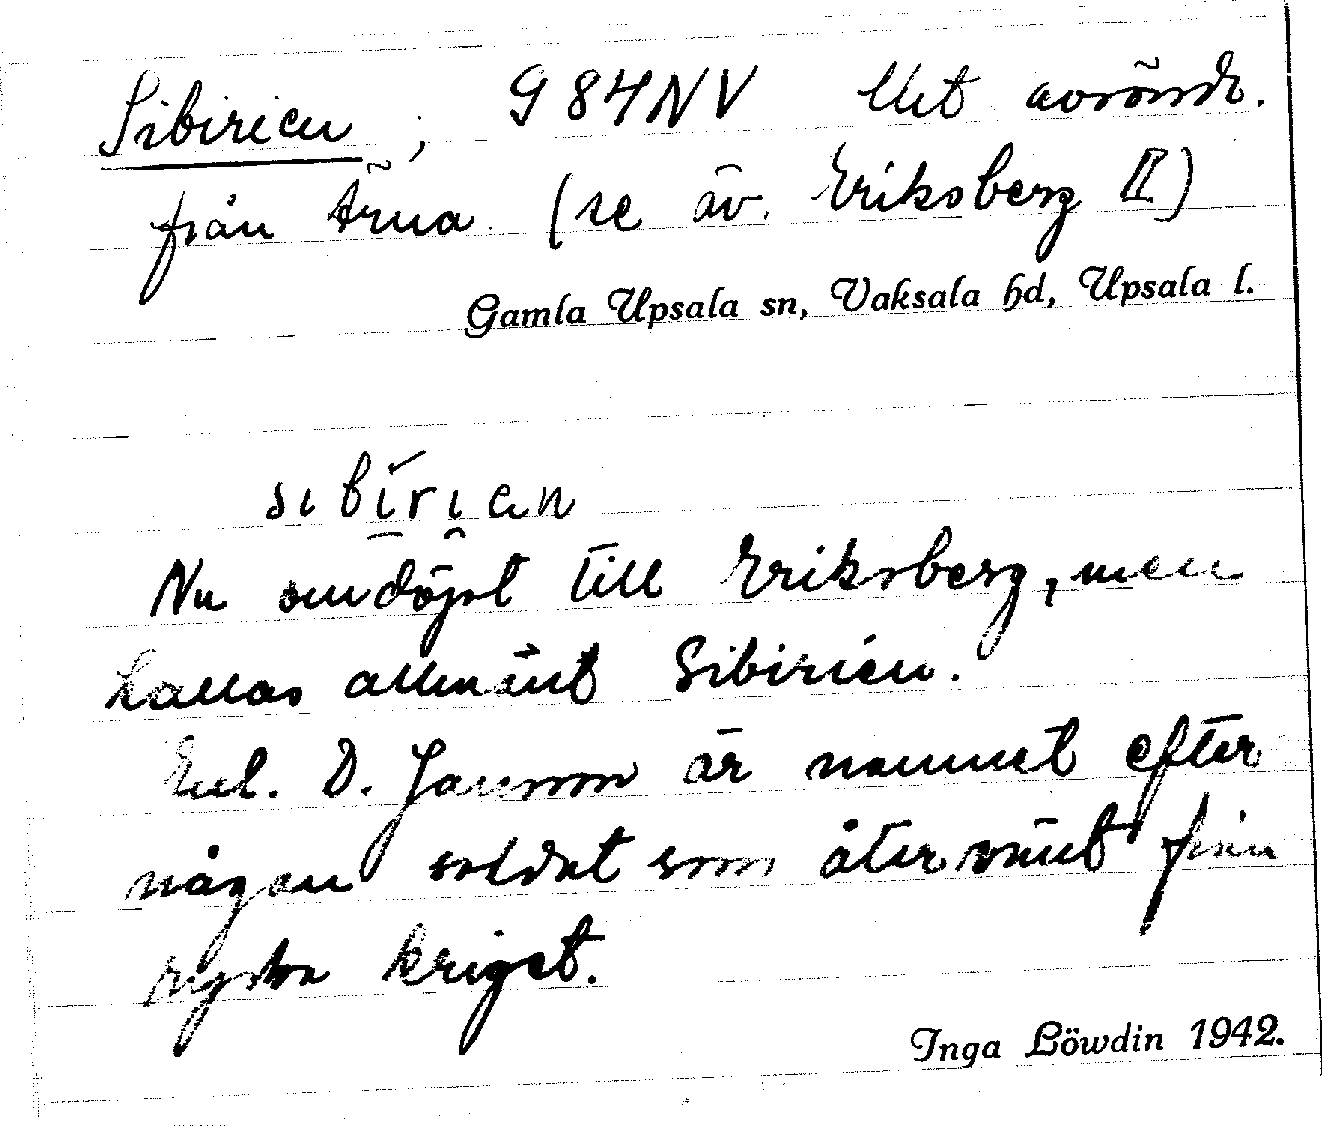 Sibirien, G 84 NV Utet avsöndr.
från Ärna (se äv. Eriksberg II)
Gamla Upsala sn, Vaksala hd, Upsala l.
sıbírıan
Nu omdöpt till Eriksberg, men
kallas allmänt Sibirien.
Enl. D. Jansson är namnet efter
någon soldat som återvänt från
ryska kriget.
Inga Löwdin 1942.